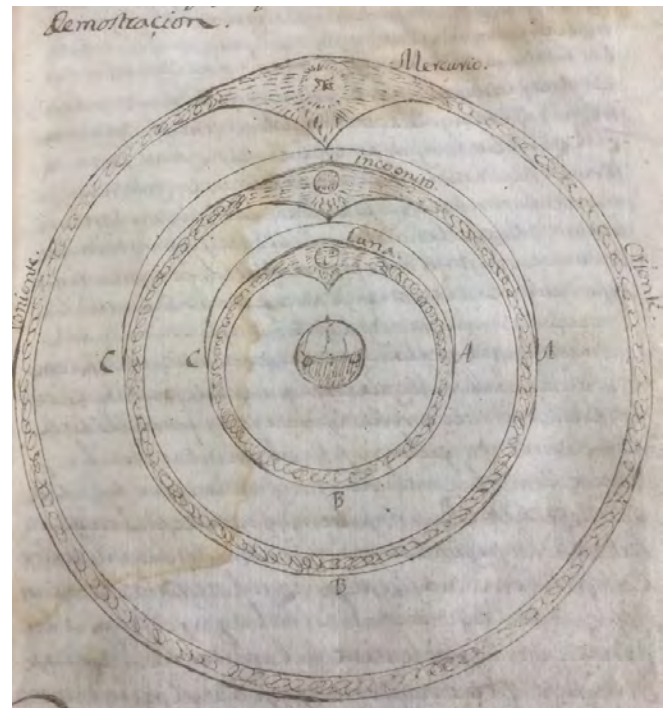 Demostraçion.
Mercurio.
incognito.
Luna.
Poniente.
Oriente.
C
C
A
A
B
B